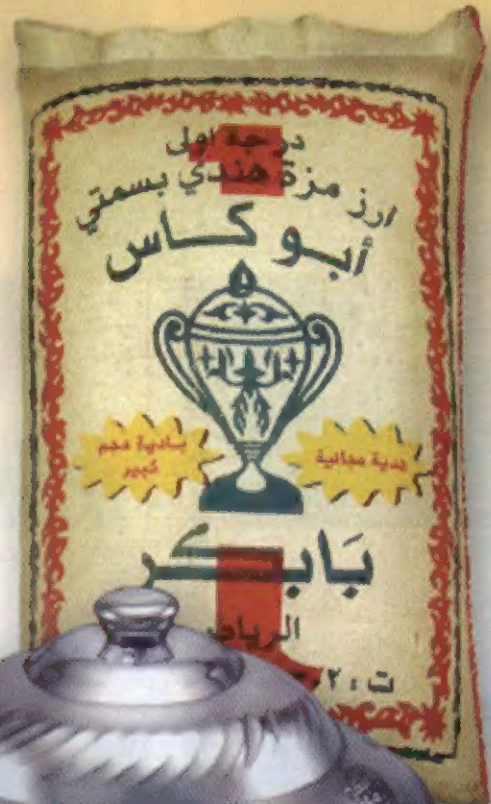 درجة اولى
ارز مزة هندي بسمتي
أبو كاس
هدية مجانية
بادية حجم
كبير
بَابكر
الرياض